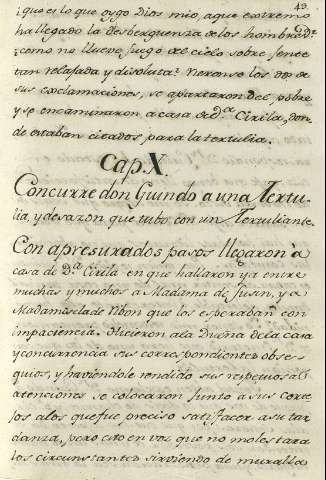 49.
¡que es lo que oygo Dios mio, a que extremo
ha llegado la desberguenza de los hombres!
¿como no llueve fuego del cielo sobre gente
tan relajada y disoluta? Rieronse los dos de
sus exclamaciones, se apartaron del pobre
y se encaminaron a casa de d.ª Cirila, don-
de estaban citados para la tertulia.
Cap. X.
Concurre don Guindo a una Tertu-
lia, y desazon que tubo con un Tertuliante.
Con apresurados pasos llegaron à
casa de D.ª Cirila en que hallaron ya entre
muchas y muchos a Madama de Jusin, y a
Madamisela de Pibon que los esperaban con
impaciencia. Hicieron a la Dueña de la casa
y concurrencia sus correspondientes obse-
quios, y haviendole rendido sus respetuosas
atenciones se colocaron junto a sus corte
jos a los que fue preciso satisfacer a su tar
danza, pero esto en vos que no molestara
los circunstantes sirviendo de muralla